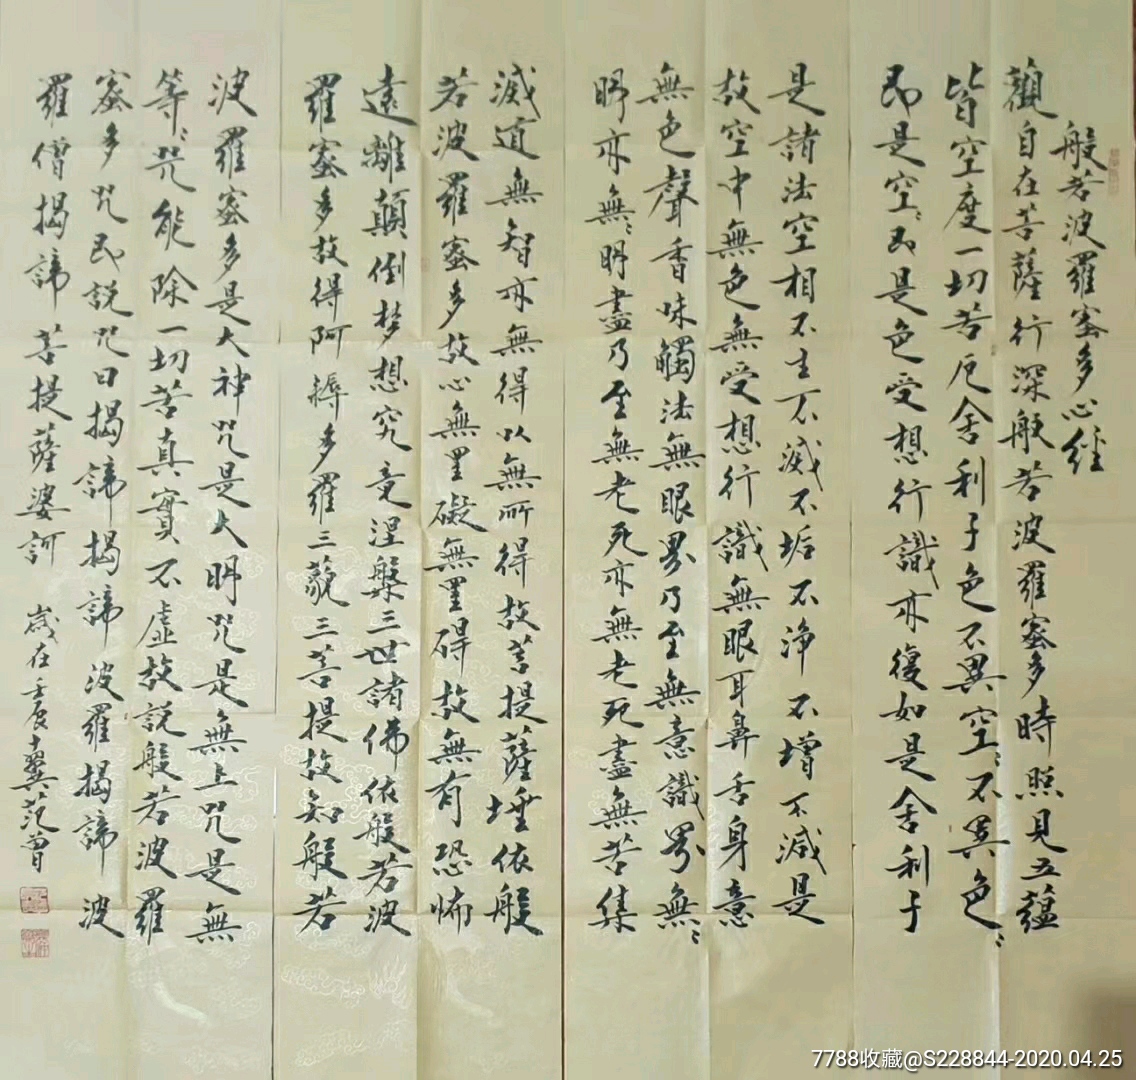 般若波羅蜜多心經
觀自在菩薩行深般若波羅蜜多時照見五蘊
皆空度一切苦厄舍利子色不異空〻不異色〻
即是空〻即是色受想行識亦復如是舍利子
是諸法空相不生不滅不垢不淨不增不減是
故空中無色無受想行識無眼耳鼻舌身意
無色聲香味觸法無眼界乃至無意識界無〻
明亦無〻明盡乃至無老死亦無老死盡無苦集
滅道無智亦無得以無所得故菩提薩埵依般
若波羅蜜多故心無罣礙無罣碍故無有恐怖
遠離顛倒梦想究竟涅槃三世諸佛依般若波
羅蜜多故得阿耨多羅三藐三菩提故知般若
波羅蜜多是大神咒是大明咒是無上咒是無
等〻咒能除一切苦真實不虛故說般若波羅
蜜多咒即說咒曰揭諦揭諦波羅揭諦波
羅僧揭諦菩提薩婆訶
歲在壬辰十翼范曾
7788收藏@S228844-2020.04.25